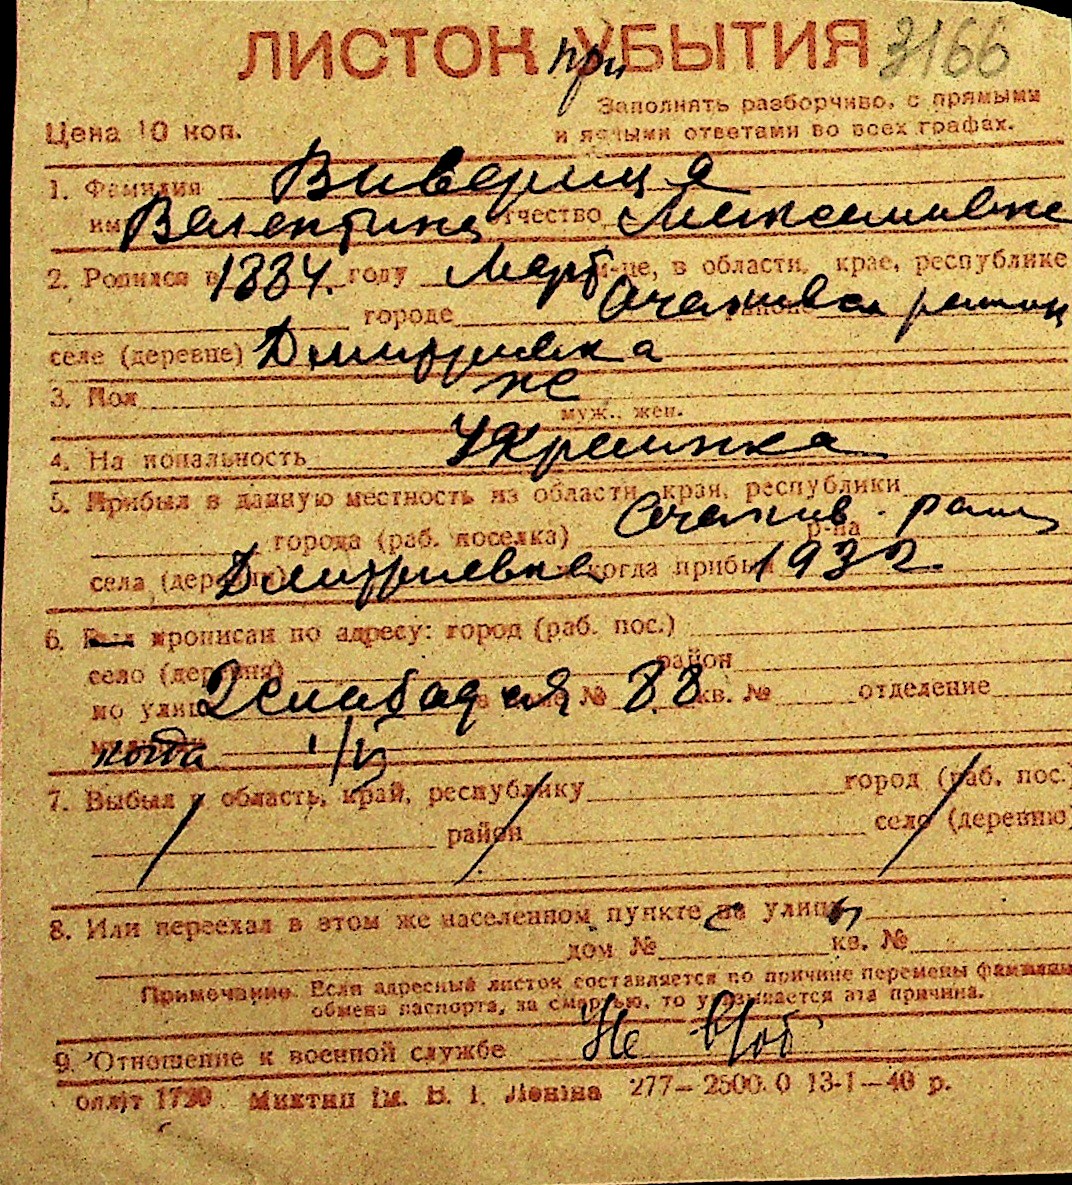 ЛИСТОК при УБЫТИЯ 3166
Заполнять разборчиво, с прямыми
Цена 10 коп. и ясными ответами во всех графах.
1. Фамилия Виверица
имя Валентина отчество Максимовна
2. Родился в 1884. году Март м-це, в области, крае, республике
городе Очаковск районе район
селе (деревне) Дмитриевка
3. Пол же
муж., жен.
4. Национальность Украинка
5. Прибыл в данную местность из области, края, республики
города (раб. поселка) Очаков. р-на район
села (деревни) Дмитриевка и когда прибыл 1932.
6. Был прописан по адресу: город (раб. пос.)
село (деревня) район
по улице в доме № 88 кв. № отделение
милиции когда
7. Выбыл в область, край, республику город (раб. пос.)
район село (деревню)
8. Или переехал в этом же населенном пункте на улицу
дом № кв. №
Примечание. Если адресный листок составляется по причине перемены фамилии,
обмена паспорта, за смертью, то указывается эта причина.
9. Отношение к военной службе Не в/об
1790 Миктип ім. В. І. Леніна 277—2500.0 13-I—40 р.